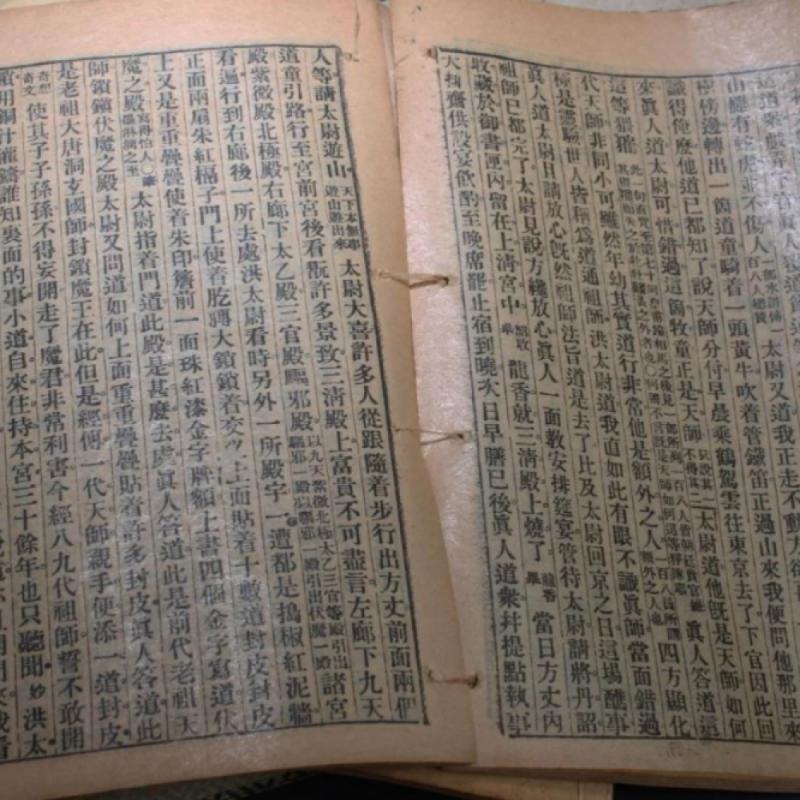 山雖有蛇虎並不傷人一部水滸傳一百八人總贊太尉又道我正走不動方
樹傍邊轉出一箇道童騎着一頭黃牛吹着管鐵笛正過山來我便問他那里來
識得俺麼他道已都知了說天師分付早晨乘鶴駕雲往東京去了下官因此回
來眞人道太尉可惜錯過這箇牧童正是天師太尉道他旣是天師如何
這等猥獕眞人答道這
代天師非同小可雖然年幼其實道行非常他是額外之人四方顯化
極是靈驗世人皆稱爲道通祖師洪太尉道我直如此有眼不識眞師當面錯過
眞人道太尉且請放心旣然祖師法旨道是去了比及太尉回京之日這場醮事
祖師已都完了太尉見說方纔放心眞人一面敎安排筵宴管待太尉請將丹詔
收藏於御書匣內留在上清宮中丹詔畢龍香就三清殿上燒了龍香畢當日方丈內
大排齋供設宴飲酌至晚席罷止宿到曉次日早膳已後眞人道衆幷提點執事
人等請太尉遊山天下本無事遊山遊出來太尉大喜許多人從跟隨着步行出方丈前面兩個
道童引路行至宮前宮後看翫許多景致三清殿上富貴不可盡言左廊下九天
殿紫微殿北極殿右廊下太乙殿三官殿驅邪殿以九天紫微北極太乙三官等殿引出驅邪一殿以驅邪一殿引出伏魔一殿諸宮
看遍行到右廊後一所去處洪太尉看時另外一所殿宇一遭都是搗椒紅泥牆
正面兩扇朱紅槅子門上使着胳膊大鎖鎖着交叉上面貼着十數道封皮封皮
上又是重重疊疊使着朱印簷前一面珠紅漆金字牌額上書四個金字寫道伏
魔之殿太尉指着門道此殿是甚麼去處眞人答道此是前代老祖天
師鎖鎮伏魔之殿太尉又問道如何上面重重疊疊貼着許多封皮眞人答道此
是老祖大唐洞玄國師封鎖魔王在此但是經傳一代天師親手便添一道封皮
使其子子孫孫不得妄開走了魔君非常利害今經八九代祖師誓不敢開
鎖用銅汁灌鑄誰知裏面的事小道自來住持本宮三十餘年也只聽聞妙洪太